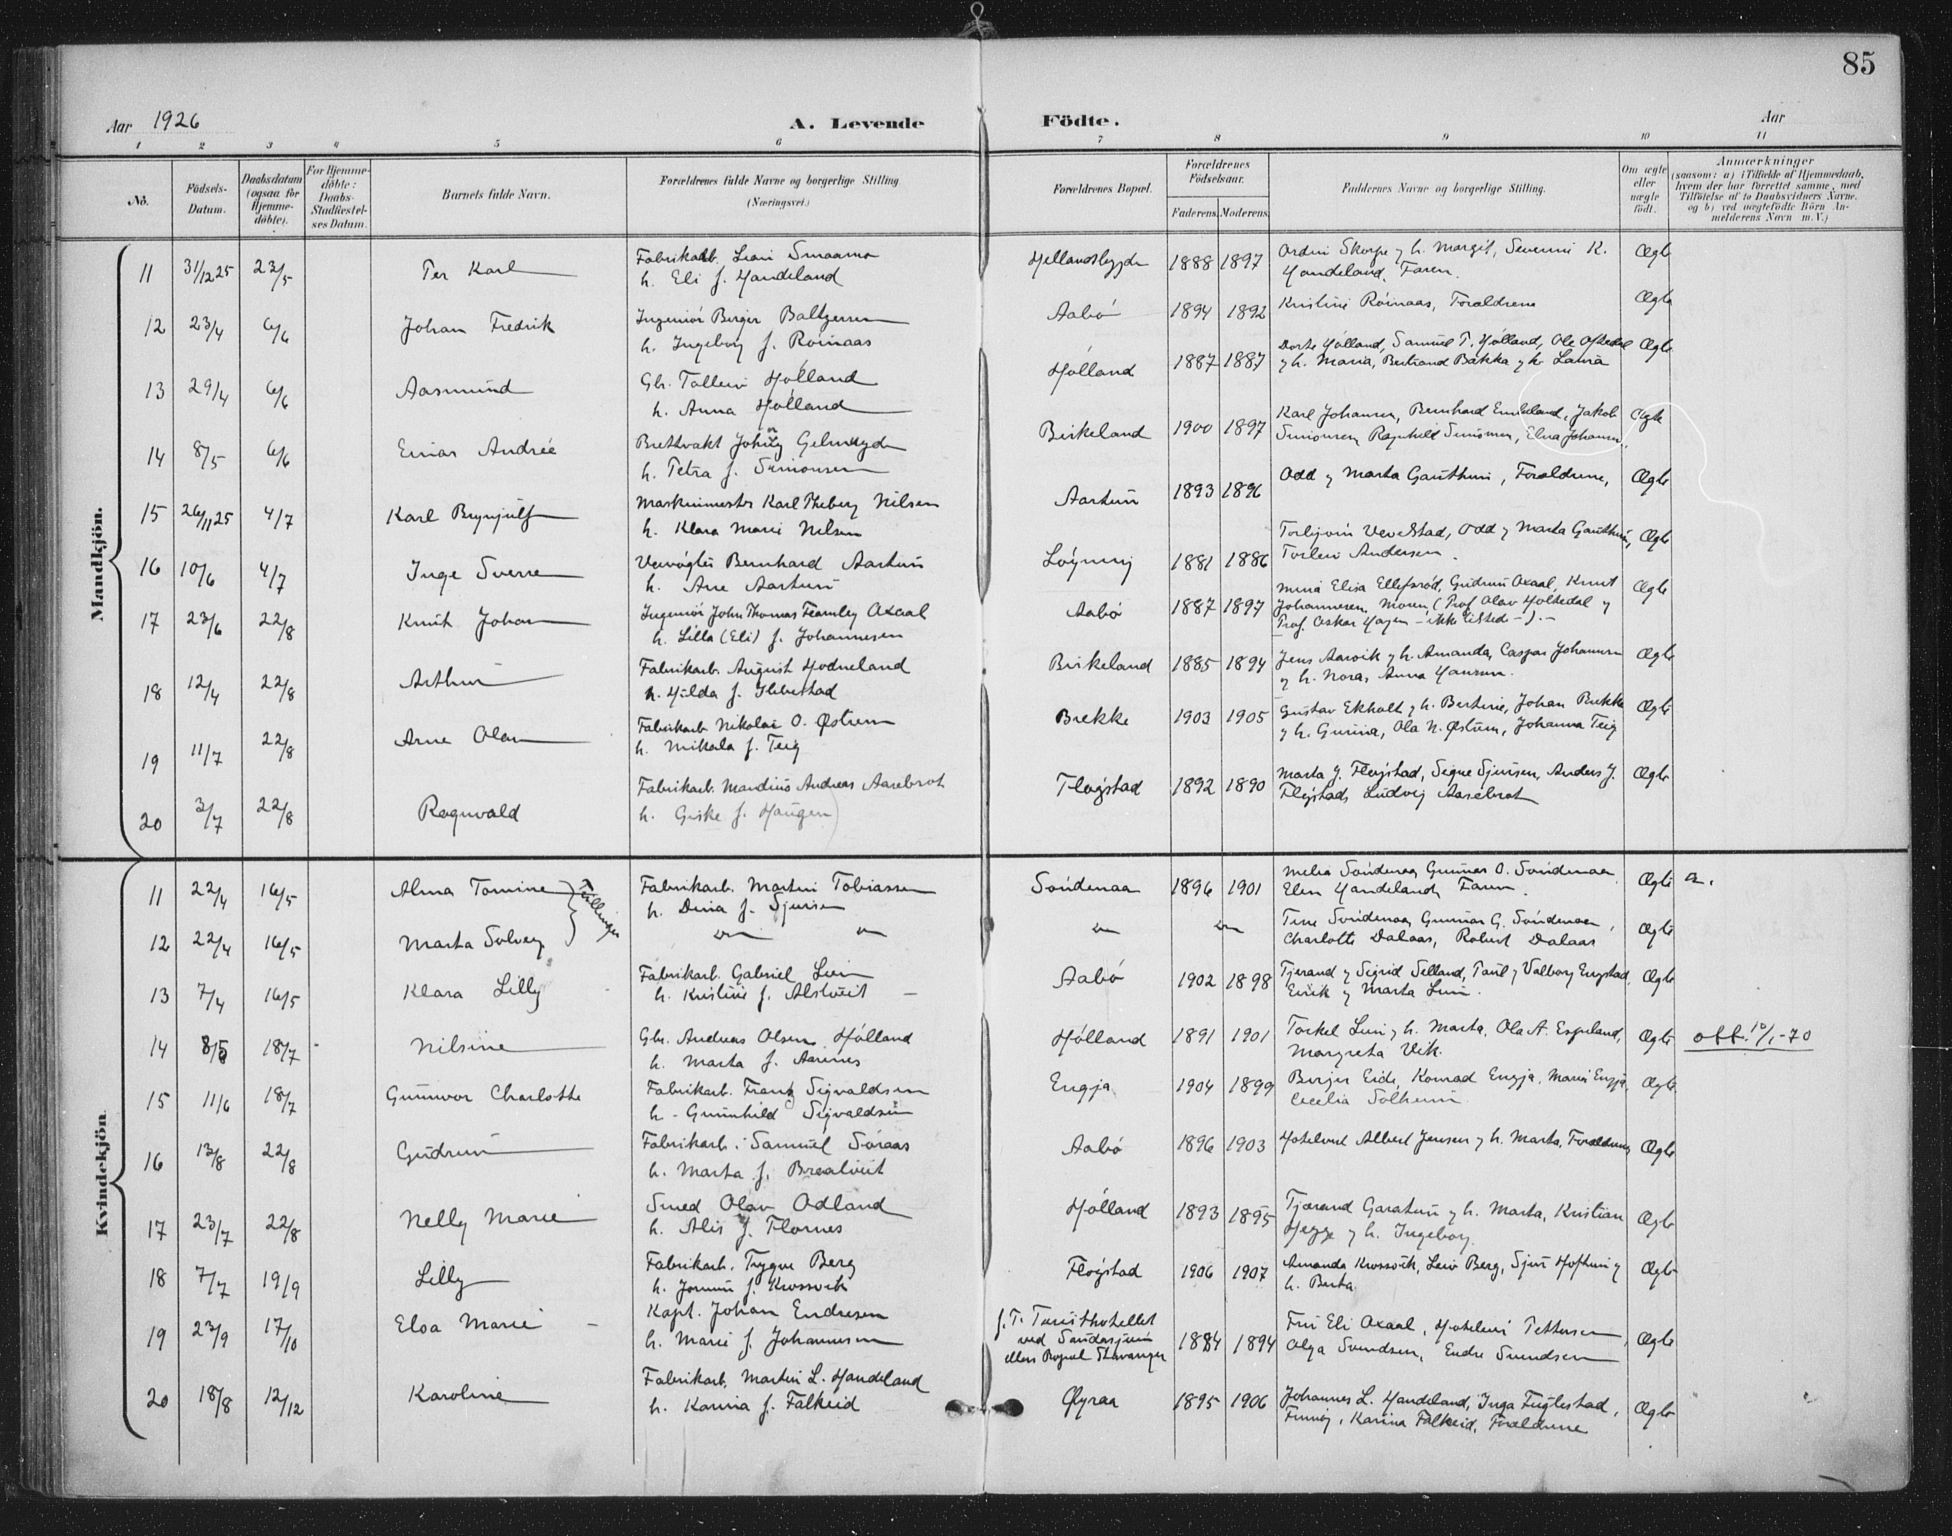 85
Aar 1926 A. Levende Födte. Aar
1 2 3 4 5 6 7 8 9 10 11
No. Födsels-Datum. Daabsdatum (ogsaa for Hjemmedöbte). For Hjemmedöbte: Daabs-Stadfæstelses Datum. Barnets fulde Navn. Forældrenes fulde Navne og borgerlige Stilling (Næringsvei.) Forældrenes Bopæl. Forældrenes Födselsaar. Faderens. Moderens. Faddernes Navne og borgerlige Stilling. Om ægte eller uægte födt. Anmærkninger (saasom: a) i Tilfælde af Hjemmedaab, hvem der har forrettet samme, med Tilföielse af to Daabsvidners Navne, og b) ved uægtefödte Börn Anmelderens Navn m. V.)
Mandkjön.
11 31/12 25 23/5 Per Karl Fabrikarb. h. Eli f. Handeland Hellandsbygd 1888 1897 Skorpe y h. Margit, K. Handeland, Faren. Ægte
12 23/4 6/6 Johan Fredrik Ingeniör Berger Baltzersen h. Ingeborg f. Röinaas Aabö 1894 1892 Kristine Röinaas, Forældrene Ægte
13 29/4 6/6 Aasmund Gbr. Hölland h. Anna Hölland Hölland 1887 1887 Dorte Hölland, Samuel T. Hölland, Ole Oftedal y h. Maria, Bertrand Bakka y h. Laura Ægte
14 8/5 6/6 Einar Andreé h. Petra f. Simonsen Birkeland 1900 1897 Karl Johansen, Bernhard Jakob Simonsen, Ragnhild Simonsen, Elna Johansen. Ægte
15 26/11 25 4/7 Karl Brynjulf Maskinmester Karl Theberg Nilsen h. Klara Marie Nilsen Aartun 1893 1896 Odd y Marta Gauthun, Forældrene, Ægte
16 10/6 4/7 Inge Sverre Bernhard Aartun h. Aartun 1881 1886 Odd y Marta Gauthun, Torleiv Andersen. Ægte
17 23/6 22/8 Knut Johan Ingeniör John Thomas Fearnley Oxaal h. Lilla (Eli) f. Johannesen Aabö 1887 1897 Elisa Ellefsröd, Gudrun Oxaal, Knut Johannesen, Moren, (Prof. Olav Holtedal y Prof. Oskar Hagen - ikke tilstede -). - Ægte
18 12/4 22/8 Arthur Fabrikarb. August Hodneland h. Hulda f. Ilbestad Birkeland 1885 1894 Jens Aarvik y h. Amanda, Caspar Johannsen y h. Nora, Anna Hansen. Ægte
19 11/7 22/8 Arne Olav Fabrikarb. Nikolai O. Østrem h. Mikala f. Teig Brekke 1903 1905 Gustav Ekholt y h. Bertine, Johan Brekke y h. Gurina, Ola N. Østrem, Johanna Teig Ægte
20 3/7 22/8 Ragnvald Fabrikarb. Mandius Andreas Aarebrot h. Giske f. Haugen Flögstad 1892 1890 Marta J. Flögstad, Signe Sjursen, Anders J. Flögstad, Ludvig Aarebrot Ægte
Kvindekjön.
11 22/4 16/5 Alma Tomine Tvillinger Fabrikarb. Martin Tobiassen h. Dina f. Sjursen Söndenaa 1896 1901 Söndenaa, Gunnar O. Söndenaa, Elen Handeland, Faren. Ægte a.
12 22/4 16/5 Marta Solveg Söndenaa, Gunnar G. Söndenaa, Charlotte Dalaas, Robert Dalaas Ægte
13 7/4 16/5 Klara Lilly Fabrikarb. Gabriel Lien h. Kristine f. Alstveit Aabö 1902 1898 Tjerand y Sigrid Selland, Paul y Valborg Engstad, Eirik y Marta Lien. Ægte
14 8/5 18/7 Nilsine Gbr. Andreas Olsen Hölland h. Marta f. Aarenes Hölland 1891 1901 Torkel Lien y h. Marta, Ola A. Espeland, Margreta Vik. Ægte att. 10/1-70
15 11/6 18/7 Gunnvor Charlotte Fabrikarb. Frantz Sigvaldsen h. Gunnhild Sigvaldsen Engja 1904 1899 Berger Eide, Konrad Engja, Marie Engja, Cecelia Solheim. Ægte
16 13/8 22/8 Gudrun Fabrikarb. Samuel Söraas h. Marta f. Breatveit Aabö 1896 1903 Albert Jensen y h. Marta, Forældrene, Ægte
17 23/7 22/8 Nelly Marie Smed Olav Odland h. Alis f. Flornes Hölland 1893 1895 Tjærand Garatun y h. Marta, Kristian Hegge y h. Ingeborg. Ægte
18 7/7 19/9 Lilly Fabrikarb. Trygve Berg h. Jorunn f. Krossvik Flögstad 1906 1907 Amanda Krossvik, Leiv Berg, Sjur y h. Berta. Ægte
19 23/9 17/10 Eloa Marie Kapt. Johan Endresen h. Marie f. Johannesen f. T. Turisthotellet ved Sandasjöen ellers Bopæl Stavanger 1884 1894 Fru Eli Oxaal, Pettersen, Olga Svendsen, Endre Svendsen Ægte
20 18/8 12/12 Karoline Fabrikarb. Martin L. Handeland h. Karina f. Falkeid Øyraa 1895 1906 Johannes L. Handeland, Inga Fuglestad, Karina Falkeid, Forældrene Ægte